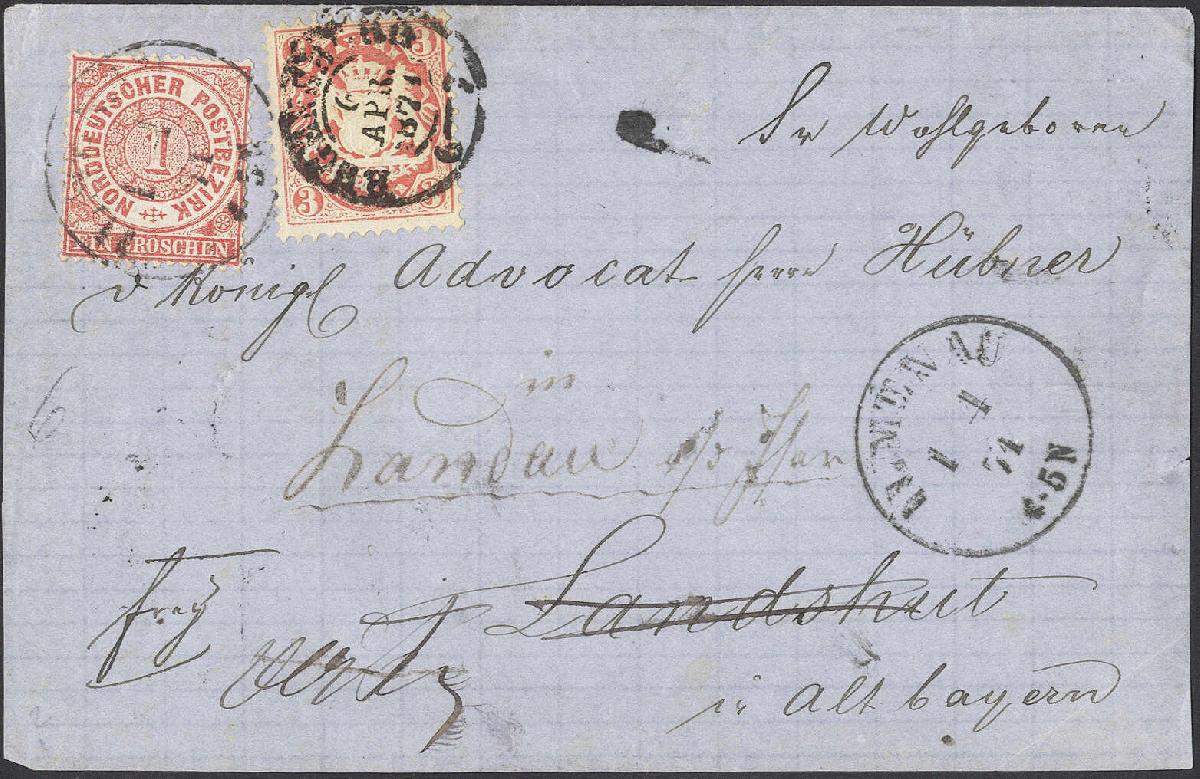 NORDDEUTSCHER POSTBEZIRK
1
EIN GROSCHEN
3 3
3 3
6
APR
1871
Sr Wohlgeboren
d Königl Advocat Herrn Hübner
in
Landau a/d Isar
ILMENAU
1 4
71
4-5N
frey
Landshut
in Alt bayern
6